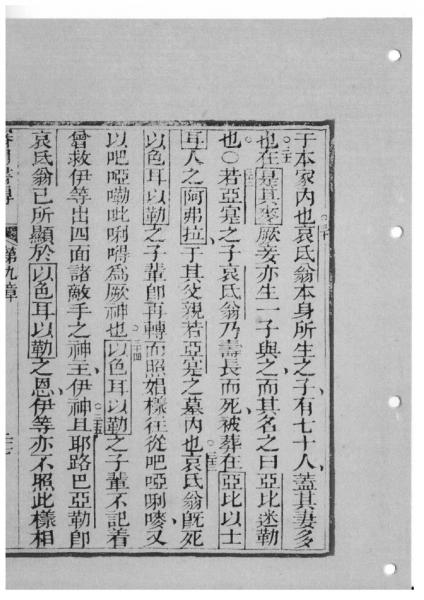 于本家內也○三十哀氏翁本身所生之子有七十人蓋其妻多
也○三一在是其麥厥妾亦生一子與之而其名之曰亞比迷勒
也○○三二若亞寔之子哀氏翁乃壽長而死被葬在亞比以士
耳人之阿弗拉于其父親若亞寔之墓內也○三三哀氏翁旣死
以色耳以勒之子輩卽再轉而照娼樣往從吧啞唎嘜又
以吧啞嘞呲唎㘔為厥神也○三四以色耳以勒之子輩不記着
曾救伊等出四面諸敵手之神主伊神○三五且耶路巴亞勒卽
哀氏翁已所顯於以色耳以勒之恩伊等亦不照此樣相
第九章